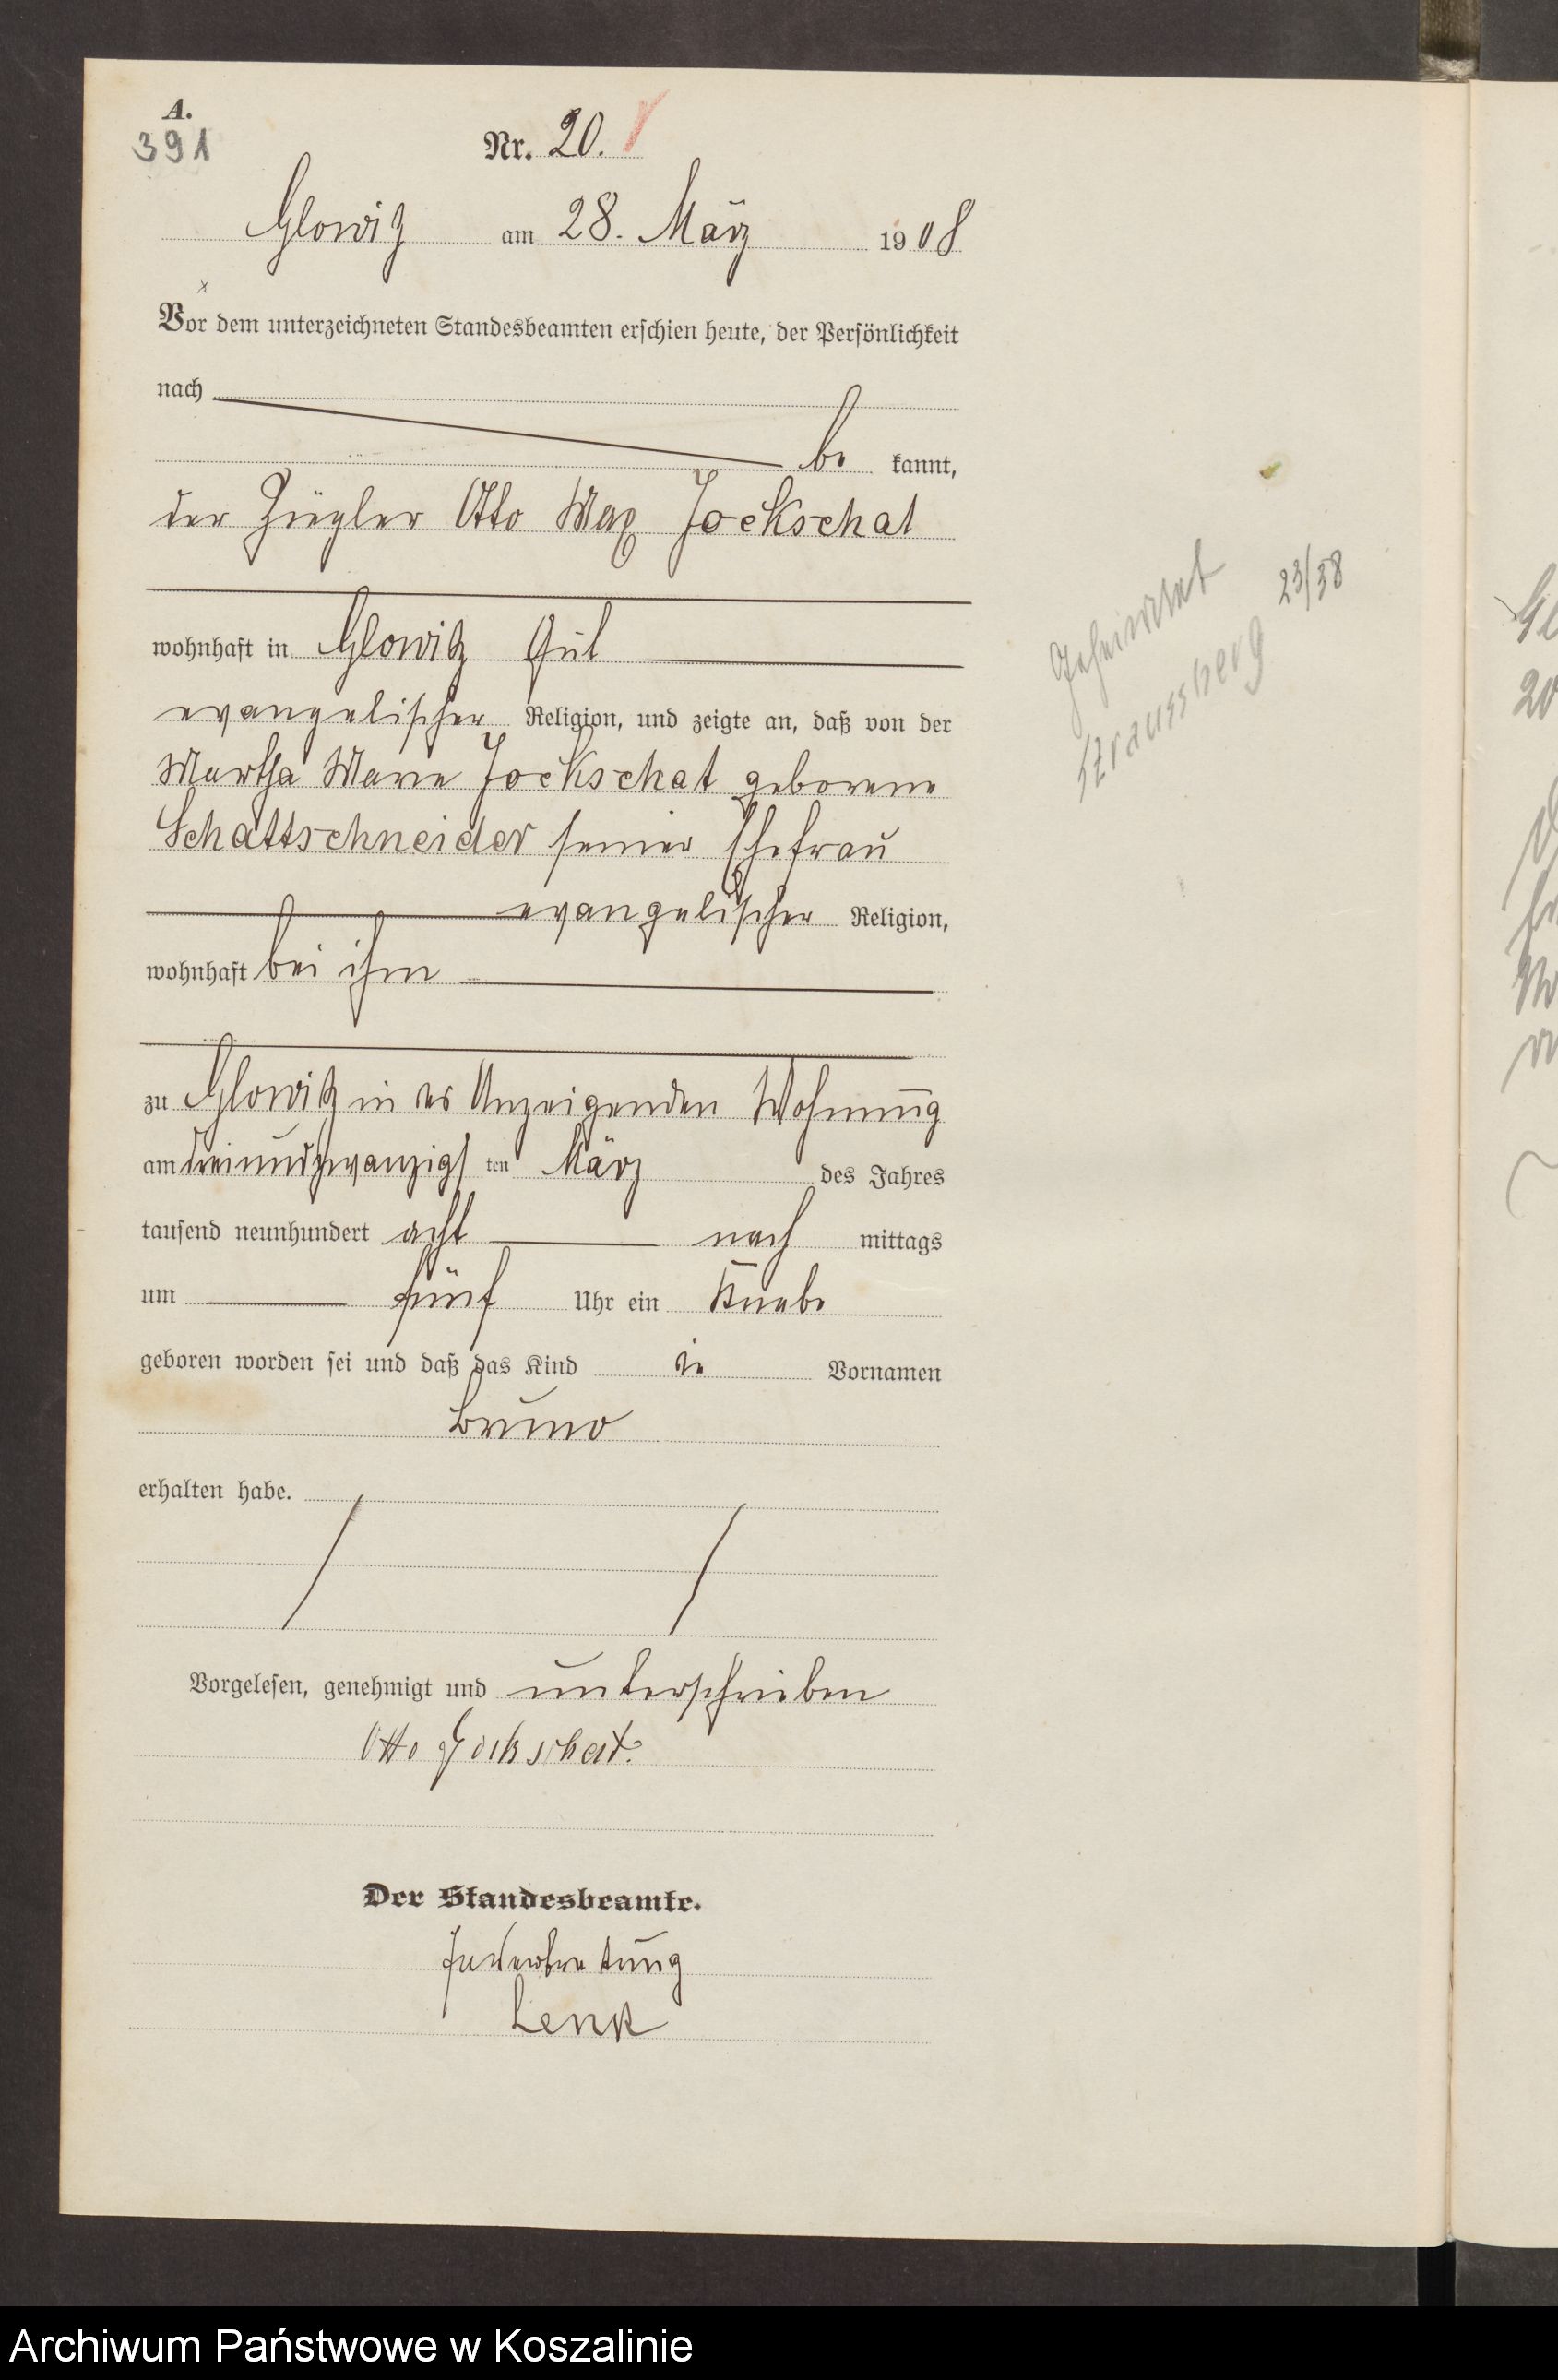 A.
391
Nr. 20.
Glowitz am 28. März 1908
Vor dem unterzeichneten Standesbeamten erschien heute, der Persönlichkeit
nach
be kannt,
der Ziegler Otto Max Jockschat
wohnhaft in Glowitz Gut
evangelischer Religion, und zeigte an, daß von der
Martha Marie Jockschat geborene
Schattschneider seiner Ehefrau
evangelischer Religion,
wohnhaft bei ihm
zu Glowitz in des Anzeigenden Wohnung
am dreiundzwanzigsten März des Jahres
tausend neunhundert acht nach mittags
um fünf Uhr ein Knabe
geboren worden sei und daß das Kind die Vornamen
Bruno
erhalten habe.
Vorgelesen, genehmigt und unterschrieben
Otto Jockschat.
Der Standesbeamte.
In Vertretung
Lenk
Geheiratet 23/38
Straussberg
Archiwum Państwowe w Koszalinie